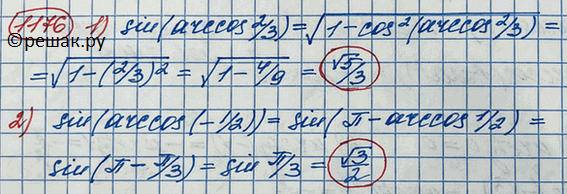 1176 1) sin(arccos 2/3) = √(1-cos²(arccos 2/3)) =
©решак.ру
= √(1-(2/3)²) = √(1-4/9) = √5/3
2) sin(arccos(-1/2)) = sin(π-arccos 1/2) =
sin(π-π/3) = sin π/3 = √3/2